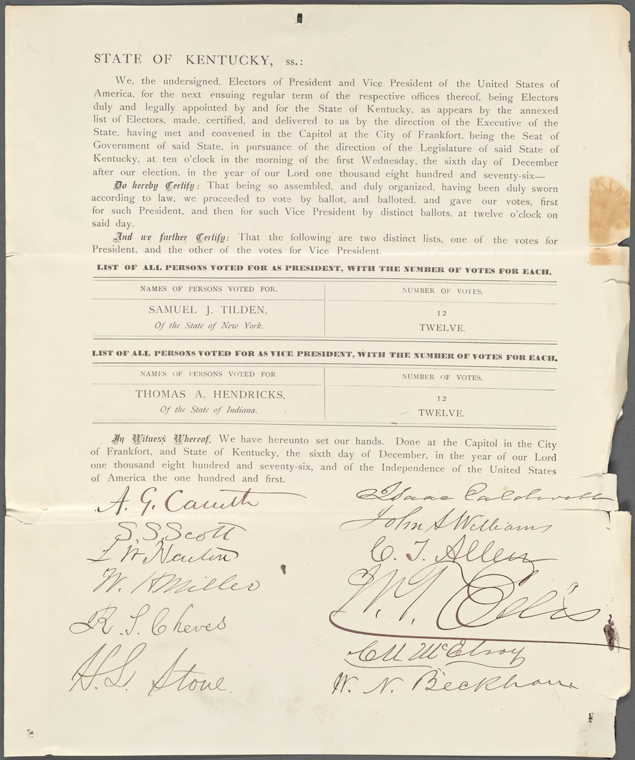 STATE OF KENTUCKY, ss.:
We, the undersigned, Electors of President and Vice President of the United States of
America, for the next ensuing regular term of the respective offices thereof, being Electors
duly and legally appointed by and for the State of Kentucky, as appears by the annexed
list of Electors, made, certified, and delivered to us by the direction of the Executive of the
State, having met and convened in the Capitol at the City of Frankfort, being the Seat of
Government of said State, in pursuance of the direction of the Legislature of said State of
Kentucky, at ten o'clock in the morning of the first Wednesday, the sixth day of December
after our election, in the year of our Lord one thousand eight hundred and seventy-six—
Do hereby Certify: That being so assembled, and duly organized, having been duly sworn
according to law, we proceeded to vote by ballot, and balloted, and gave our votes, first
for such President, and then for such Vice President by distinct ballots, at twelve o'clock on
said day.
And we further Certify: That the following are two distinct lists, one of the votes for
President, and the other of the votes for Vice President.
LIST OF ALL PERSONS VOTED FOR AS PRESIDENT, WITH THE NUMBER OF VOTES FOR EACH.
NAMES OF PERSONS VOTED FOR. NUMBER OF VOTES.
SAMUEL J. TILDEN, 12
Of the State of New York. TWELVE.
LIST OF ALL PERSONS VOTED FOR AS VICE PRESIDENT, WITH THE NUMBER OF VOTES FOR EACH.
NAMES OF PERSONS VOTED FOR NUMBER OF VOTES.
THOMAS A. HENDRICKS, 12
Of the State of Indiana. TWELVE.
In Witness Whereof, We have hereunto set our hands. Done at the Capitol in the City
of Frankfort, and State of Kentucky, the sixth day of December, in the year of our Lord
one thousand eight hundred and seventy-six, and of the Independence of the United States
of America the one hundred and first.
A. G. Caruth Isaac Caldwell
S. S. Scott John S Williams
C. T. Allen
W. H Miller W. T.
R. S. Cheves
H. L. Stone. McElroy
W. N. Beckham